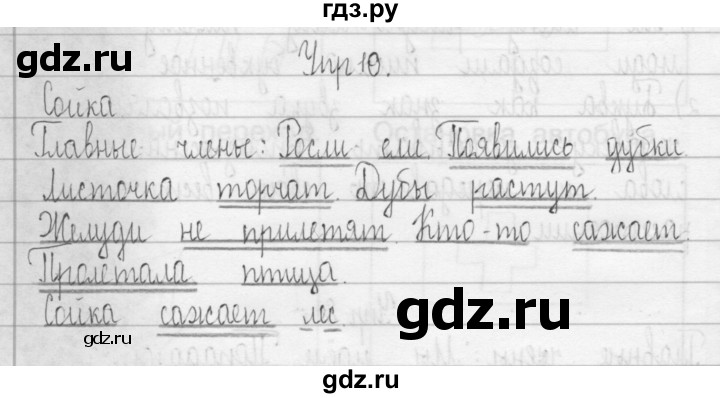 гдз.ру
gdz.ru
gdz.ru
Упр 10.
Сойка
Главные члены: Росли ели. Появились дубки.
Листочка торчат. Дубы растут.
Желуди не прилетят. Кто-то сажает.
Пролетала птица.
Сойка сажает лес
gdz.ru
gdz.ru
gdz.ru